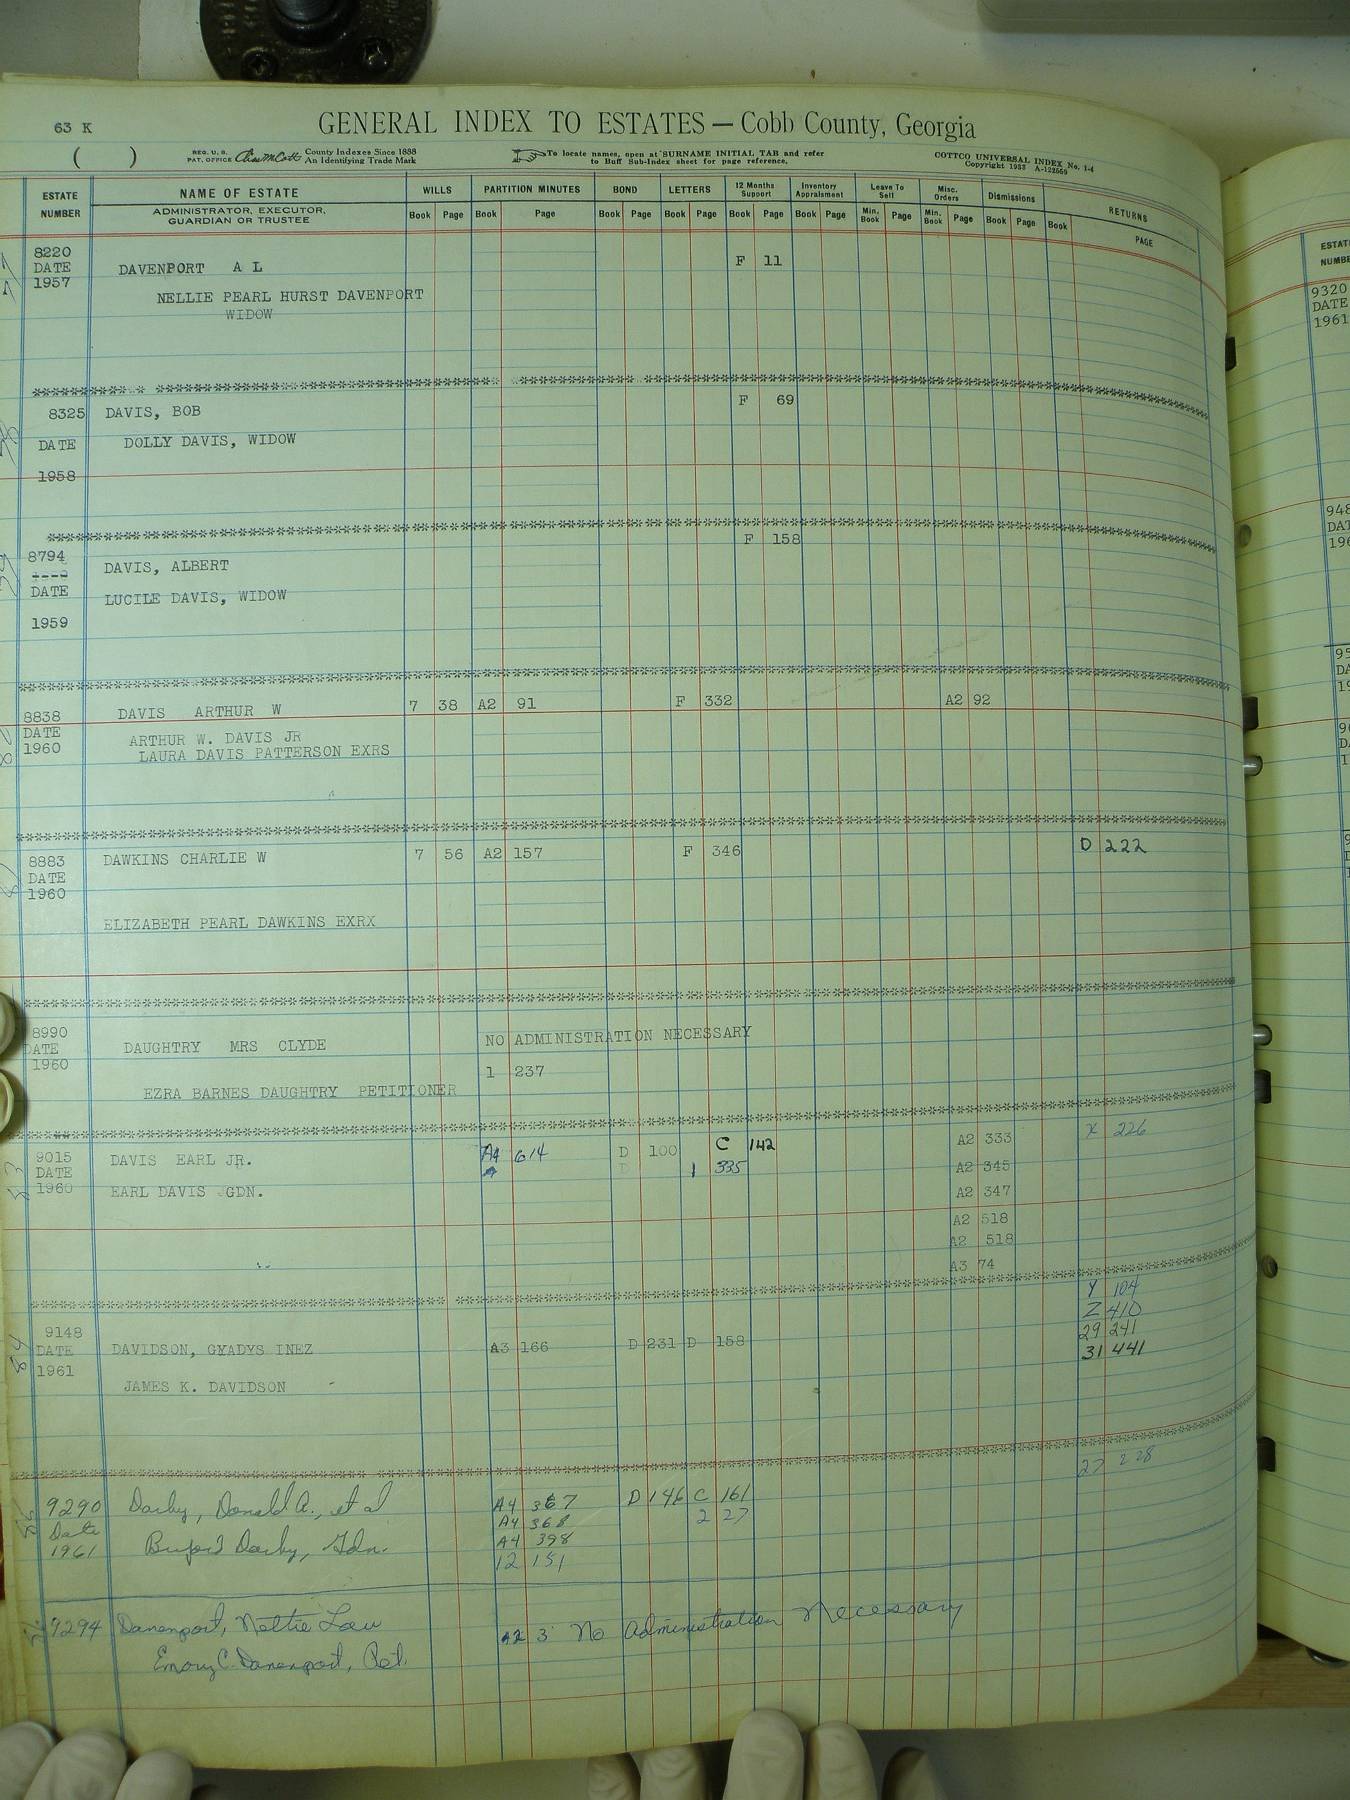 63 K
GENERAL INDEX TO ESTATES — Cobb County, Georgia
( ) REG. U. S. PAT. OFFICE County Indexes Since 1888 An Identifying Trade Mark
To locate names, open at SURNAME INITIAL TAB and refer
to Buff Sub-Index sheet for page reference.
COTTCO UNIVERSAL INDEX No. 1-4
Copyright 1933 A-122559
ESTATE NUMBER NAME OF ESTATE WILLS PARTITION MINUTES BOND LETTERS 12 Months Support Inventory Appraisment Leave To Sell Misc. Orders Dismissions RETURNS
ADMINISTRATOR, EXECUTOR, GUARDIAN OR TRUSTEE Book Page Book Page Book Page Book Page Book Page Book Page Min. Book Page Min. Book Page Book Page Book PAGE
8220 F 11
DATE DAVENPORT A L
1957 NELLIE PEARL HURST DAVENPORT
WIDOW
8325 DAVIS, BOB F 69
DATE DOLLY DAVIS, WIDOW
1958
8794 F 158
DAVIS, ALBERT
DATE LUCILE DAVIS, WIDOW
1959
8838 DAVIS ARTHUR W 7 38 A2 91 F 332 A2 92
DATE ARTHUR W. DAVIS JR
1960 LAURA DAVIS PATTERSON EXRS
8883 DAWKINS CHARLIE W 7 56 A2 157 F 346 D 222
DATE
1960
ELIZABETH PEARL DAWKINS EXRX
8990 NO ADMINISTRATION NECESSARY
DATE DAUGHTRY MRS CLYDE
1960 1 237
EZRA BARNES DAUGHTRY PETITIONER
9015 DAVIS EARL JR. A4 614 D 100 C 142 A2 333 X 226
DATE D 1 335 A2 345
1960 EARL DAVIS GDN. A2 347
A2 518
A2 518
A3 74
Y 104
Z 410
9148 29 241
DATE DAVIDSON, GLADYS INEZ A3 166 D 231 D 158 31 441
1961
JAMES K. DAVIDSON
27 228
9290 Darby, Donald A., et al A4 367 D 146 C 161
Date A4 368 2 27
1961 Buford Darby, Gdn. A4 398
12 151
9294 Davenport, Nettie Lou A2 3 No Administration Necessary
Emory C. Davenport, Pet.
ESTATE
NUMBE
9320
DATE
1961
948
DAT
196
95
DA
19